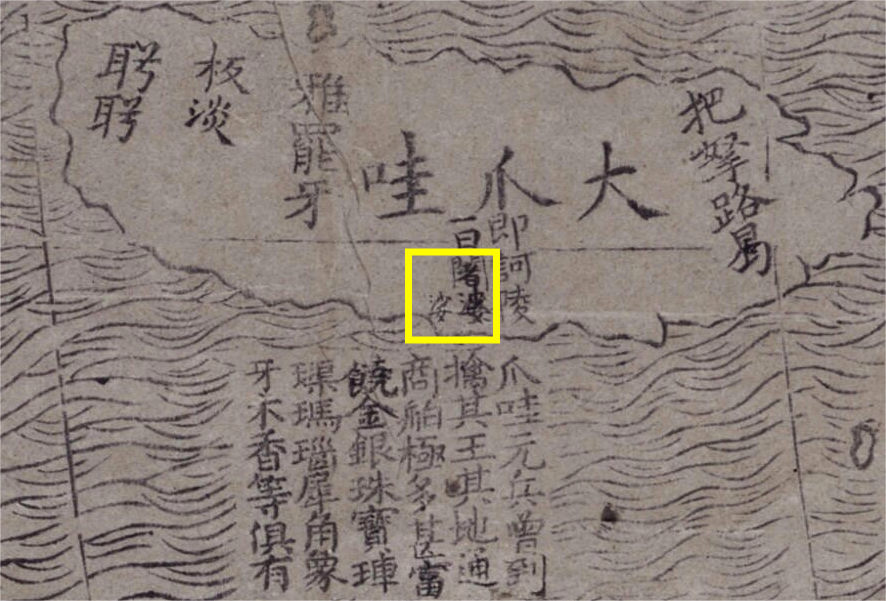 把拏路
大爪哇
即訶陵
一曰闍婆
娑
雅罷牙
板淡
聘聘
爪哇元兵曾到
擒其王其地通
商舶極多甚富
饒金銀珠寶硨
磲瑪瑙犀角象
牙木香等俱有